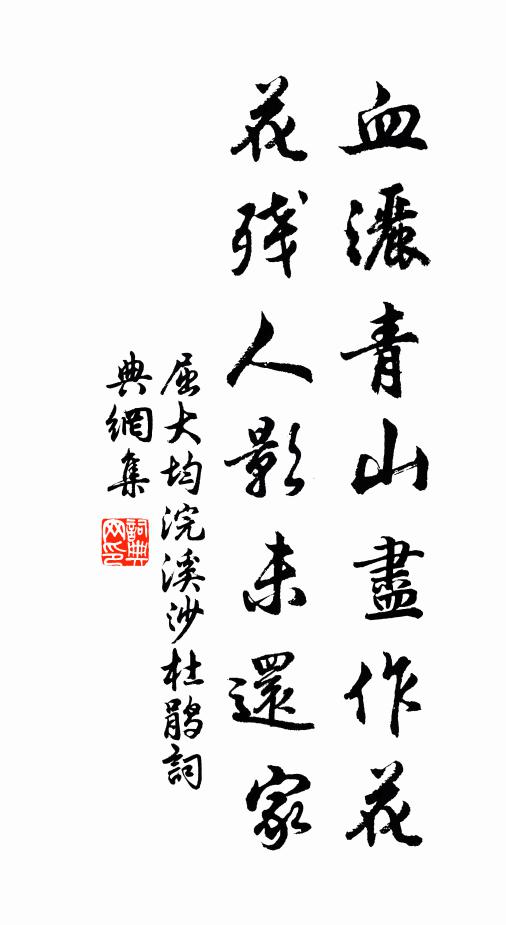 血灑青山盡作花
花残人影未還家
屈大均浣溪沙杜鹃詞
典網集
詞典网印